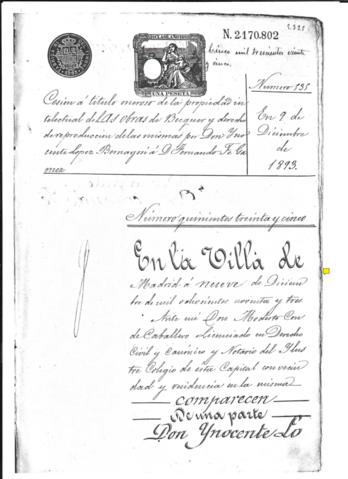 N. 2170.802
UNA PESETA
Número 535
Cesión á título oneroso de la propiedad in
telectual de las obras de Becquer y derecho
de reproducción de las mismas por Don Yno
cente Lopez Bernagosi á D. Fernando Fé Gá
mez
En 9 de
Diciembre
de
1893.
Número quinientos treinta y cinco
En la Villa de
Madrid á nueve de Diciem
bre de mil ochocientos noventa y tres
Ante mí Don Modesto Con
de Caballero Licenciado en Derecho
Civil y Canónico y Notario del Ylus
tre Colegio de esta Capital con vecin
dad y residencia en la misma
comparecen
De una parte
Don Ynocente Lo